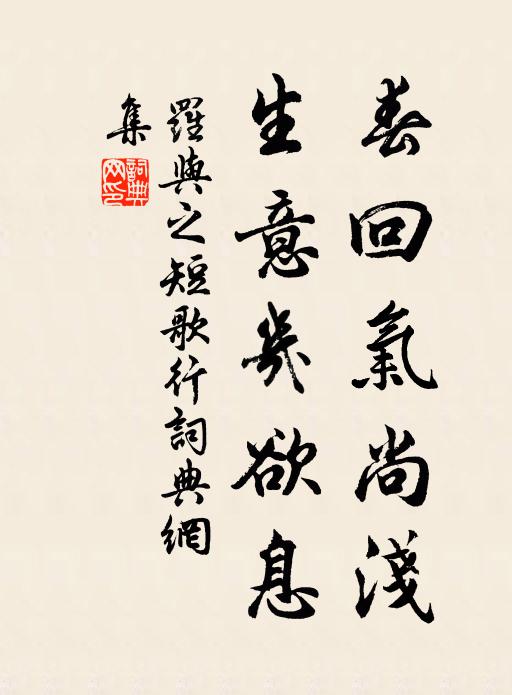 春回氣尚淺
生意幾欲息
羅與之短歌行詞典網
集
詞典網印